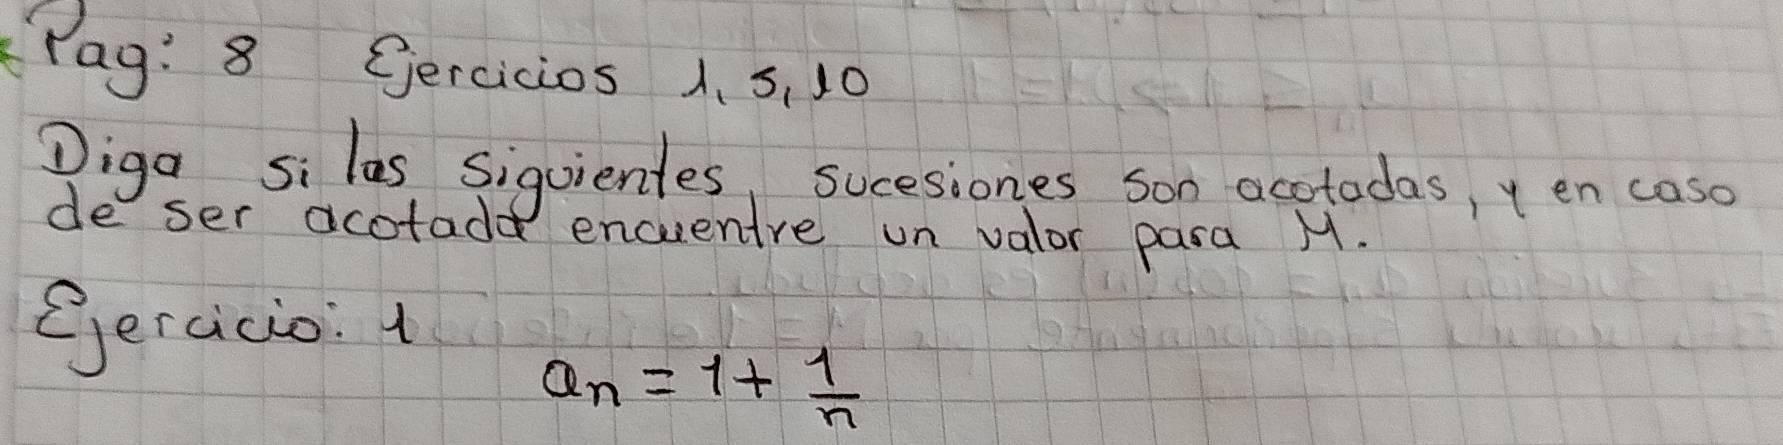 Pag: 8 Ejercicios 1, 5, 10
Diga si las siguientes, sucesiones son acotadas, y en caso
de ser acotada encuentre un valor para M.
Ejercicio: 1
an = 1 + 1/n